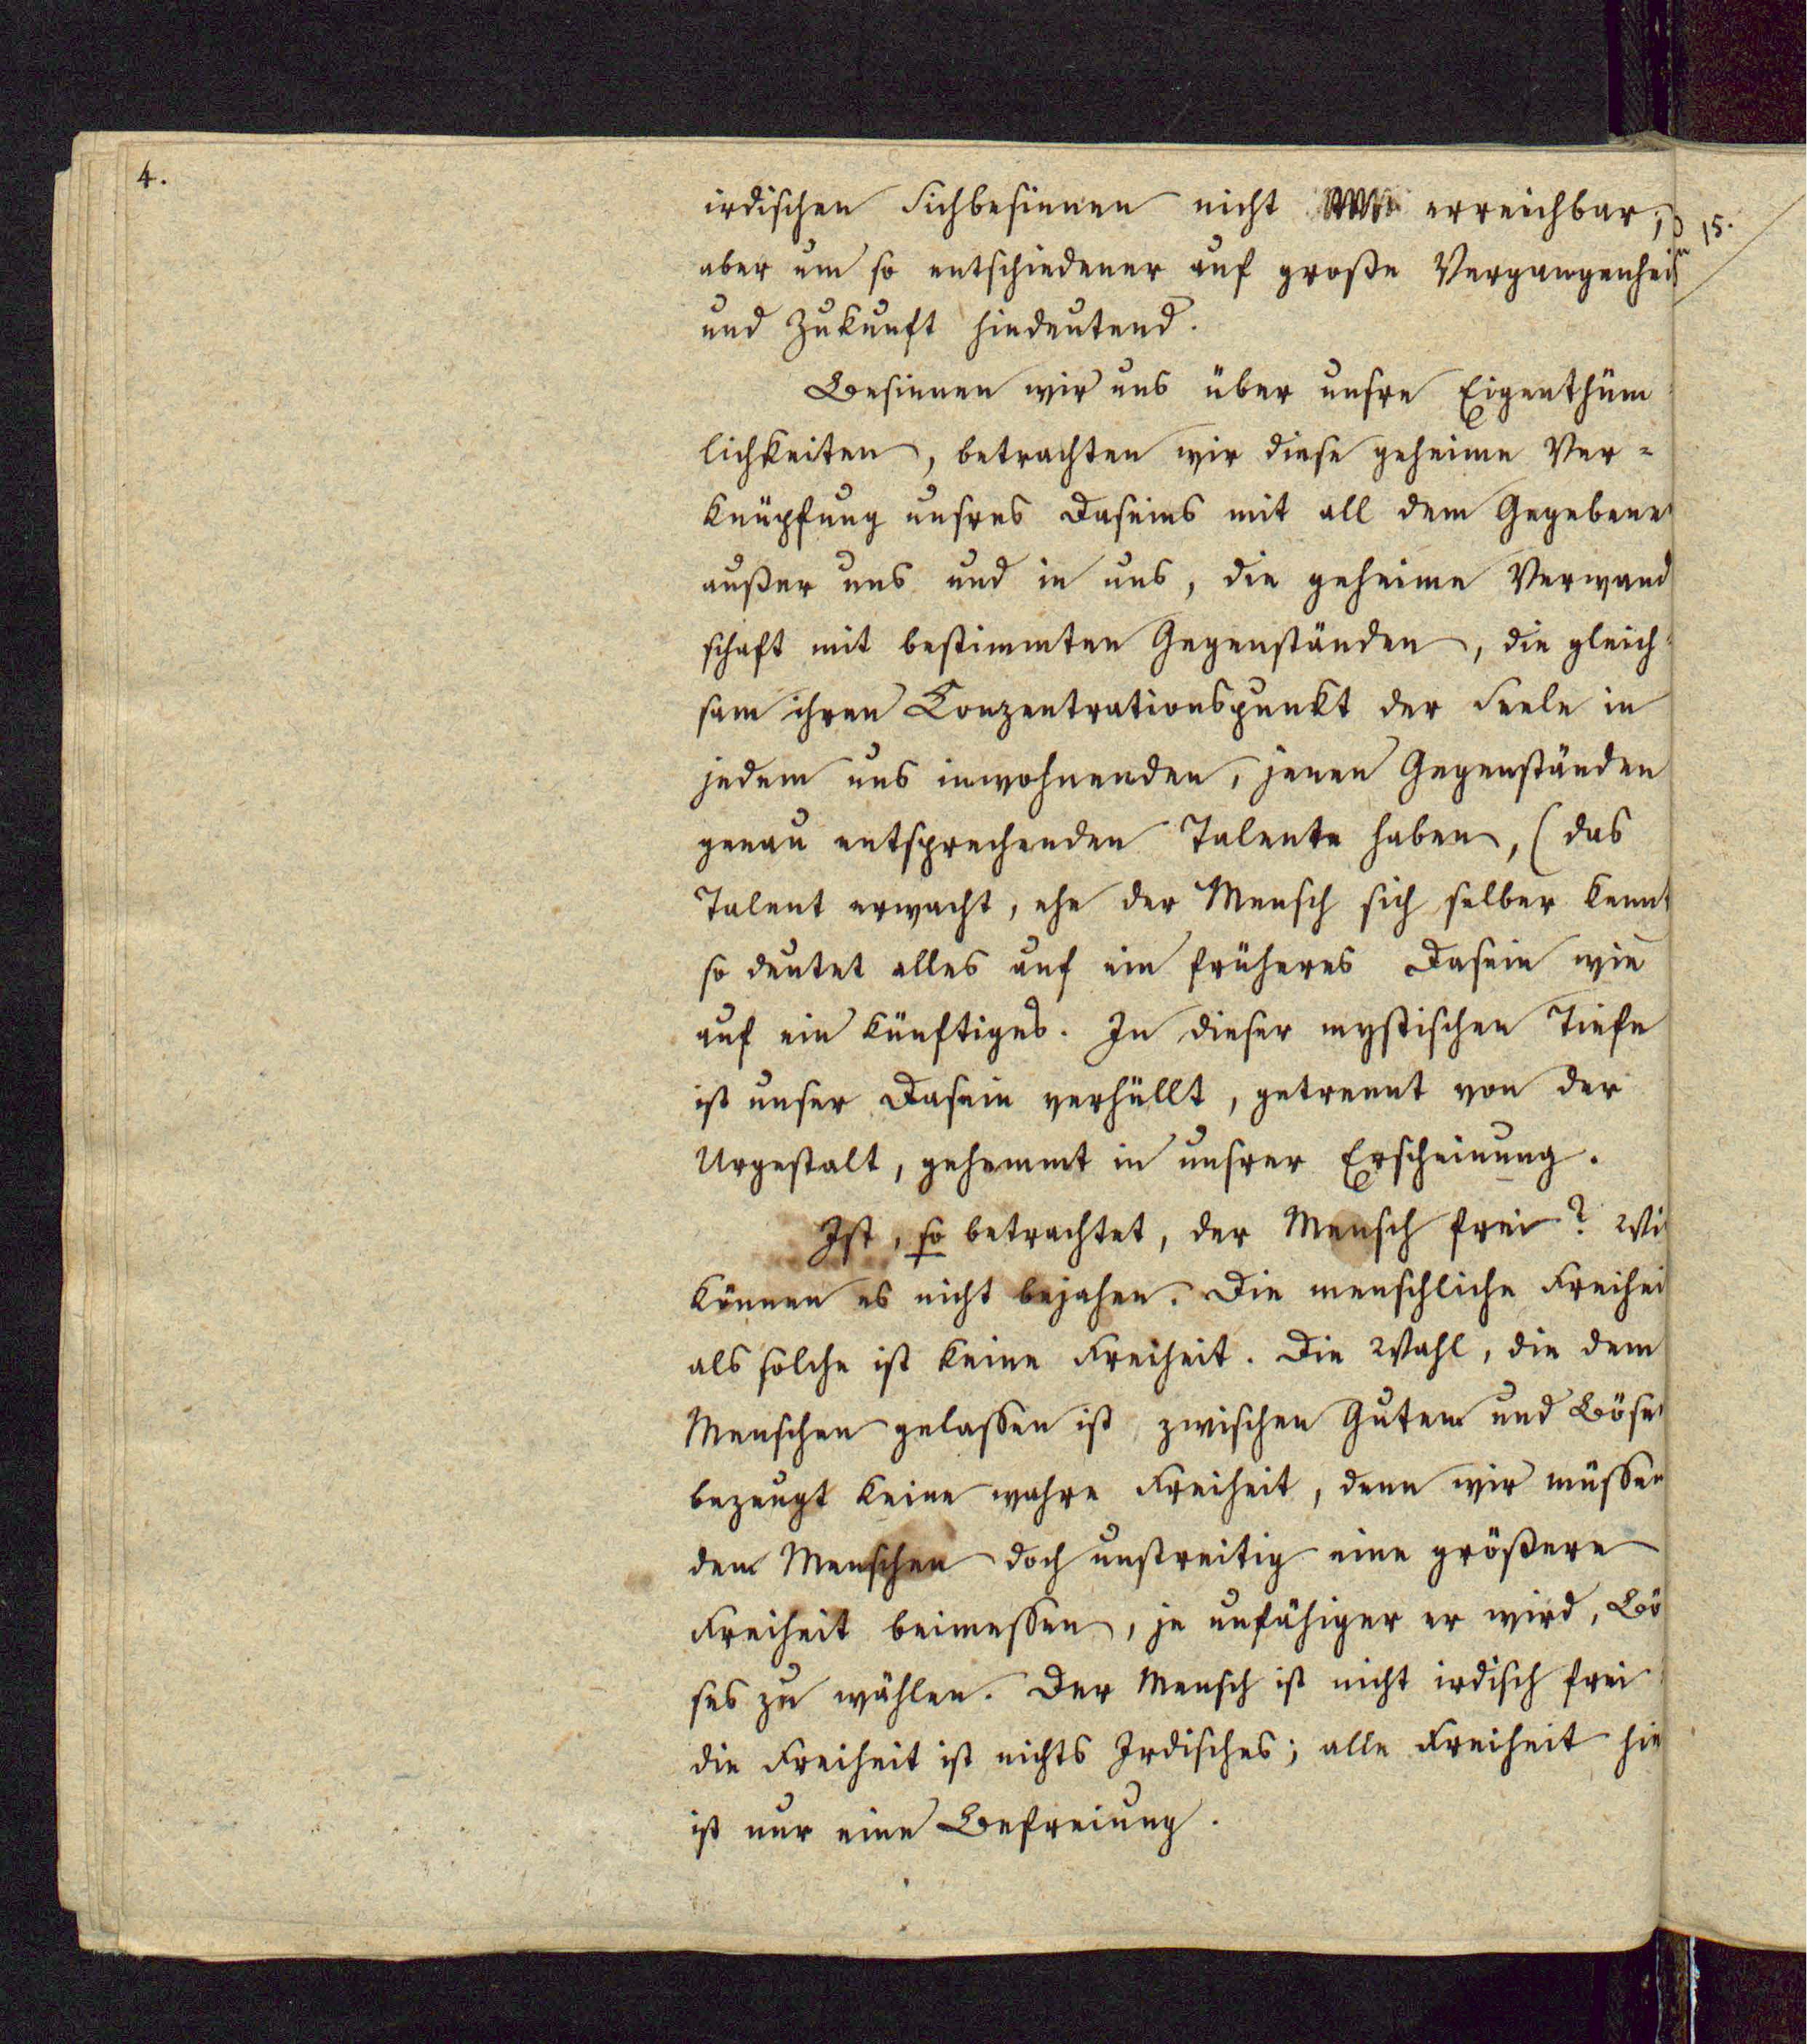 4.
irdischen Sichbesinnen nicht erreichbar,
15.
aber um so entschiedener auf große Vergangenhei
und Zukunft hindeutend.
Besinnen wir uns über unsre Eigenthüm
lichkeiten, betrachten wir diese geheime Ver-
knüpfung unsres Daseins mit all dem Gegebene
außer uns und in uns, die geheime Verwand
schaft mit bestimmten Gegenständen, die gleich
sam ihren Conzentrationspunkt der Seele in
jedem uns inwohnenden, jenen Gegenständen
genau entsprechenden Talente haben, (das
Talent erwacht, ehe der Mensch sich selber kennt
so deutet alles auf ein früheres Dasein wie
auf ein künftiges. In dieser mystischen Tiefe
ist unser Dasein verhüllt, getrennt von der
Urgestalt, gehemmt in unsrer Erscheinung.
Ist, so betrachtet, der Mensch frei? Wi
können es nicht bejahen. Die menschliche Freihei
als solche ist keine Freiheit. Die Wahl, die dem
Menschen gelassen ist zwischen Gutem und Böse
bezeugt keine wahre Freiheit, denn wir müssen
dem Menschen doch unstreitig eine größere
Freiheit beimessen, je unfähiger er wird, Bö
ses zu wählen. Der Mensch ist nicht irdisch frei
die Freiheit ist nichts Irdisches; alle Freiheit hie
ist nur eine Befreiung.